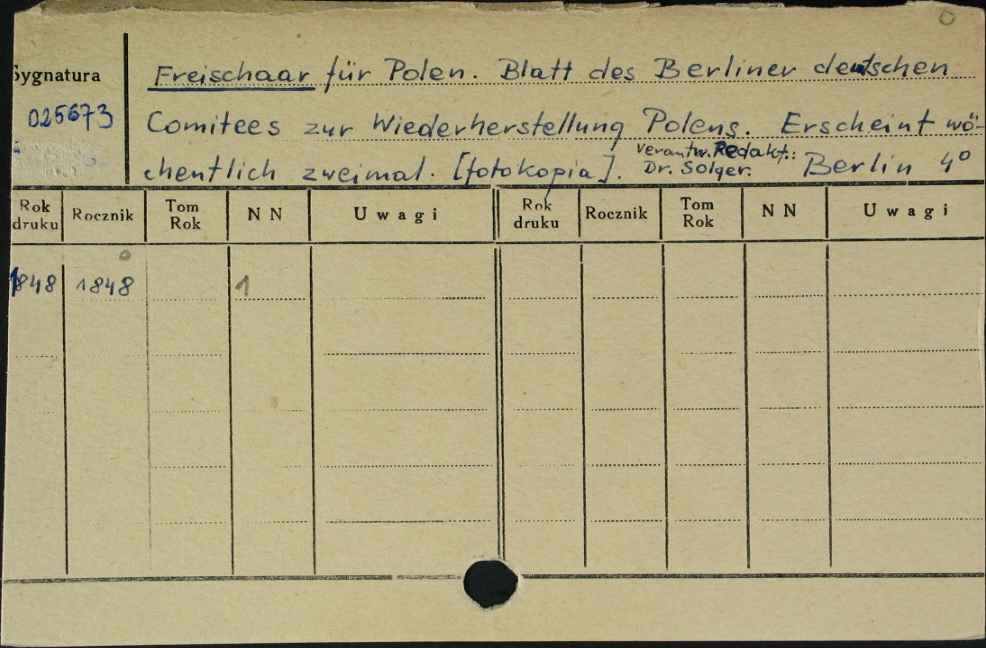 Sygnatura
025673
Freischaar für Polen. Blatt des Berliner deutschen
Comitees zur Wiederherstellung Polens. Erscheint wö-
chentlich zweimal. [fotokopia]. Verantw. Redakt.: Dr. Solger. Berlin 4°
Rok druku Rocznik Tom Rok NN Uwagi Rok druku Rocznik Tom Rok NN Uwagi
1848 1848 1